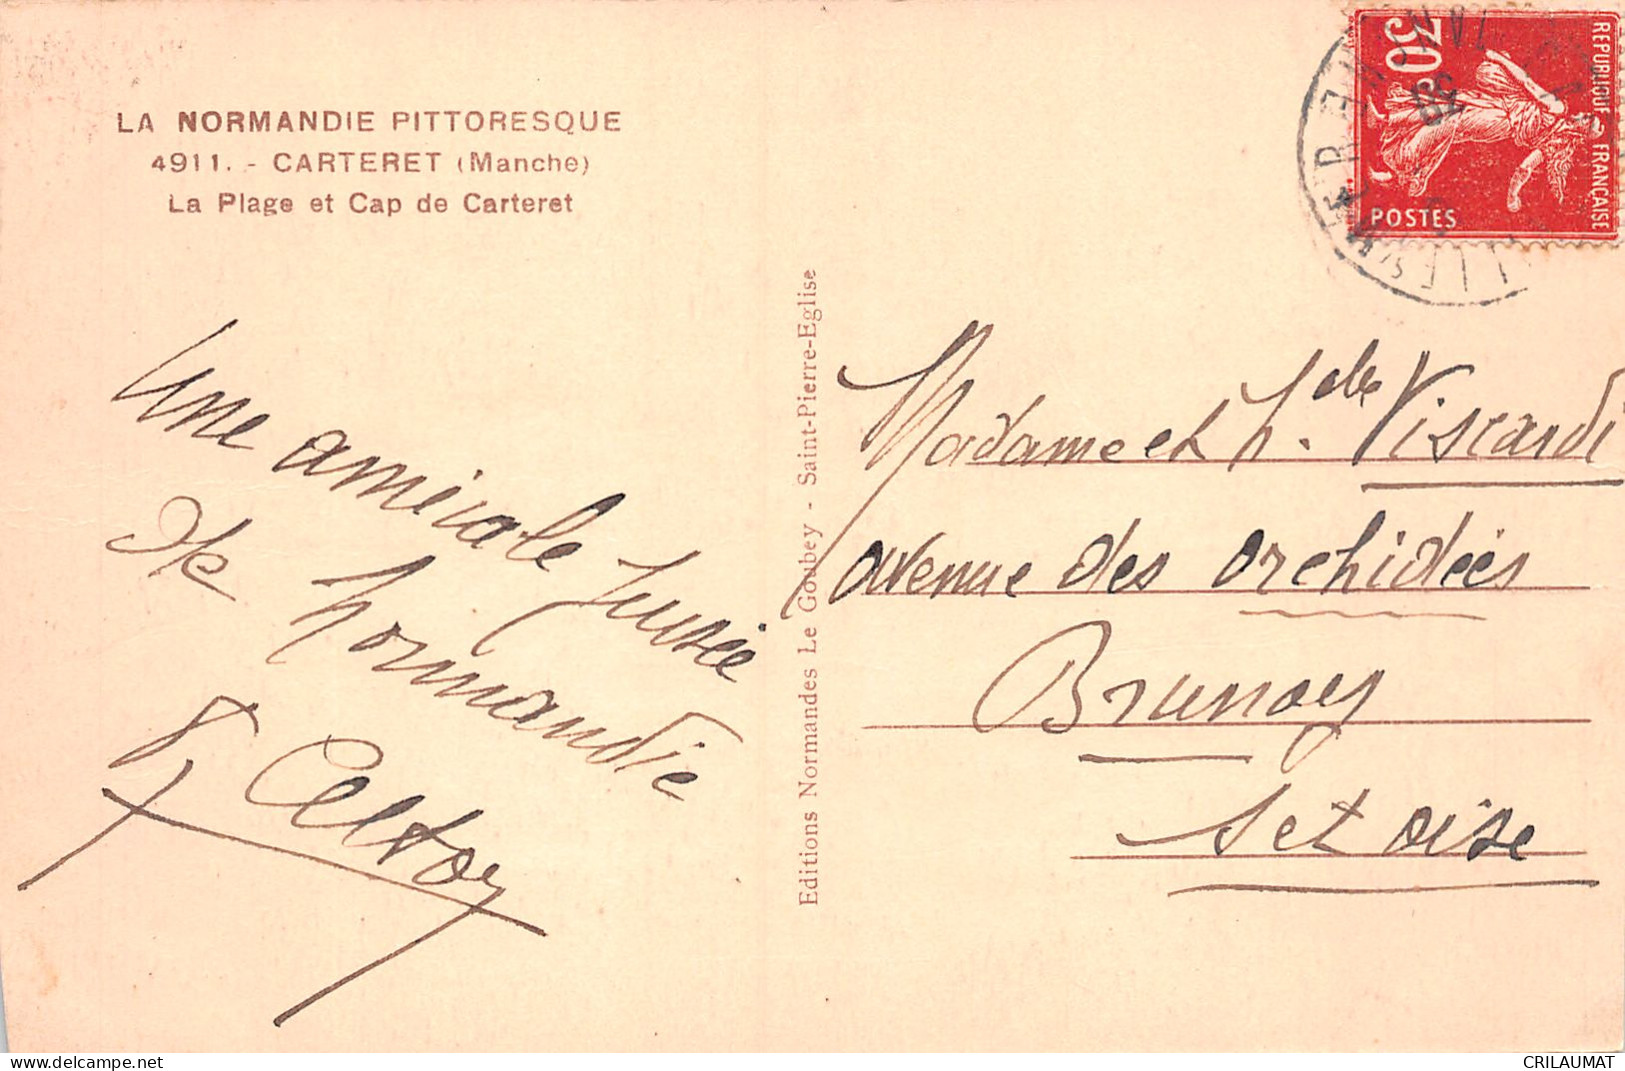 LA NORMANDIE PITTORESQUE
4911. - CARTERET (Manche)
La Plage et Cap de Carteret
30 c
REPUBLIQUE FRANÇAISE
POSTES
Une amicale pensée
de Normandie
Editions Normandes Le Goubey - Saint-Pierre-Eglise
Madame et Viscardi
avenue des orchidées
Brunoy
S et oise
delcampe.net
CRILAUMAT